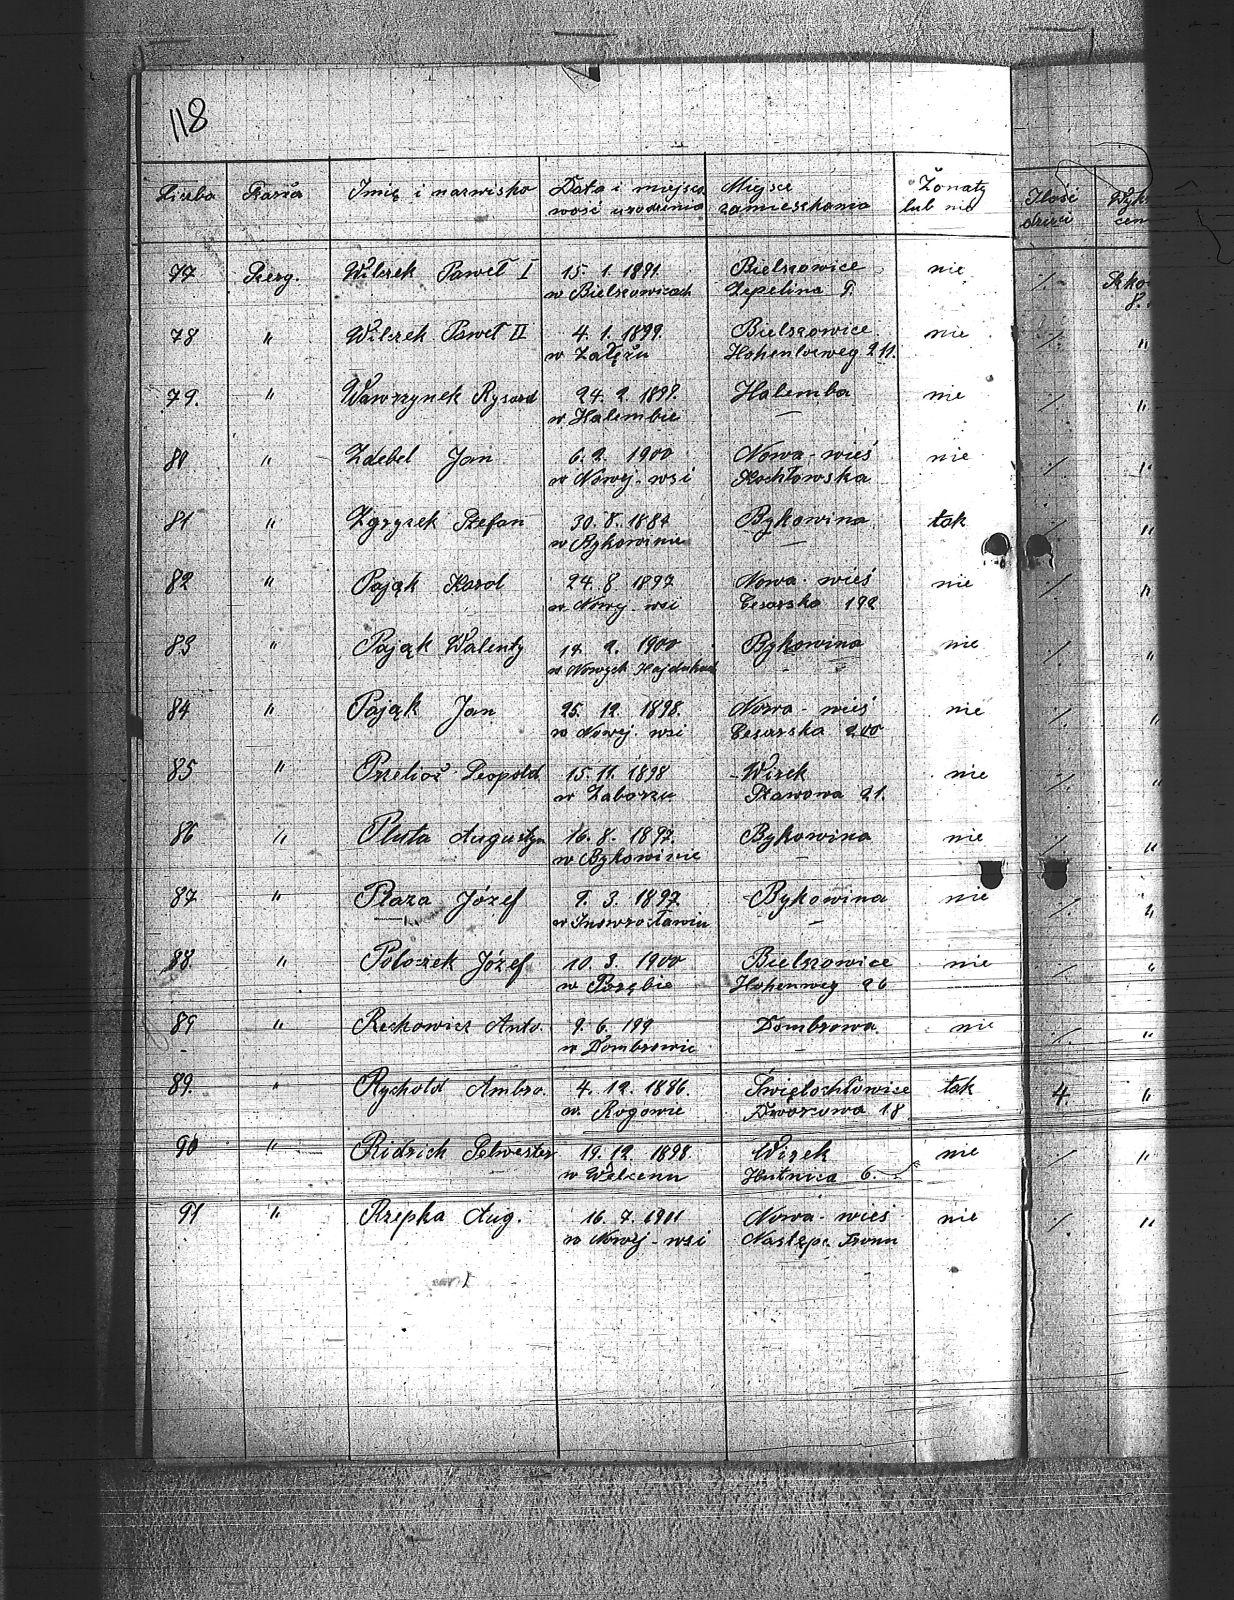 118
Liczba Szarża Imię i nazwisko Data i miejsco Miejsce Żonaty Ilość
wość urodzenia zamieszkania lub nie dzieci
77 Szerg. Wilczek Paweł I 15. 1. 1891. Bielszowice nie ./.
w Bielszowicach Zepelina 9.
78 " Wilczek Paweł II 4. 1. 1899. Bielszowice nie ./. "
w Załężu Hohenloeweg 211.
79. " Wawrzynek Rysard 24. 2. 1899. Halemba nie ./. "
w Halembie —
80 " Zdebel Jan 6. 2. 1900 Nowa-wieś nie ./. "
w Nowej-wsi Kochłowska
81 " Zgrysek Stefan 30. 8. 1884 Bykowina tak ./. "
w Bykowinie —
82 " Pająk Karol 24. 8. 1897 Nowa-wieś nie ./. "
w Nowej-wsi Cesarska 192
83 " Pająk Walenty 14. 2. 1900 Bykowina nie ./. "
w Nowych Hajdukach
84 " Pająk Jan 25. 12. 1898. Nowa-wieś nie ./. "
w Nowej wsi Cesarska 200
85 " Przelioż Leopold 15. 11. 1898 Wirek nie ./. "
w Zaborzu Stawowa 21.
86 " Pluta Augustyn 16. 8. 1897. Bykowina nie ./. "
w Bykowinie —
87 " Płaza Józef 9. 3. 1897 Bykowina nie ./. "
w Inowrocławiu —
88. " Poloczek Józef 10. 3. 1900 Bielszowice nie ./. "
w Porębie Hohenweg 26
89 " Reckowicz Anto. 9. 6. 199 Dombrowa nie ./. "
w Dombrowie —
89. " Rychold Ambro. 4. 12. 1886. Świętochłowice tak 4. "
w Rogowie Dworcowa 18
90 " Ridrich Selwester 19. 12. 1898. Wirek nie ./. "
w Hutnica 6.
91 " Rzepka Aug. 16. 7. 1901 Nowa-wieś nie ./. "
w Nowej-wsi Następc. Tronu